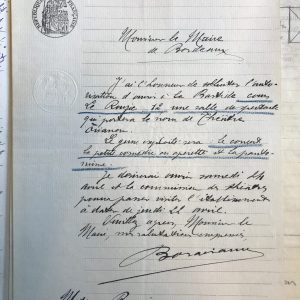 Monsieur le Maire
de Bordeaux
J'ai l'honneur de solliciter l'auto-
risation d'ouvrir à la Bastide, cours
Le Rouzic 12 une salle de spectacle
qui portera le nom de Théâtre
Le genre exploité sera le concert
la petite comédie ou opérette et la panto-
mime.
Je désirerai ouvrir samedi
avril et la commission des théâtres
pourra passer visiter l'établissement
à dater de jeudi 21 avril.
Veuillez agréer, Monsieur le
Maire, mes salutations empressées